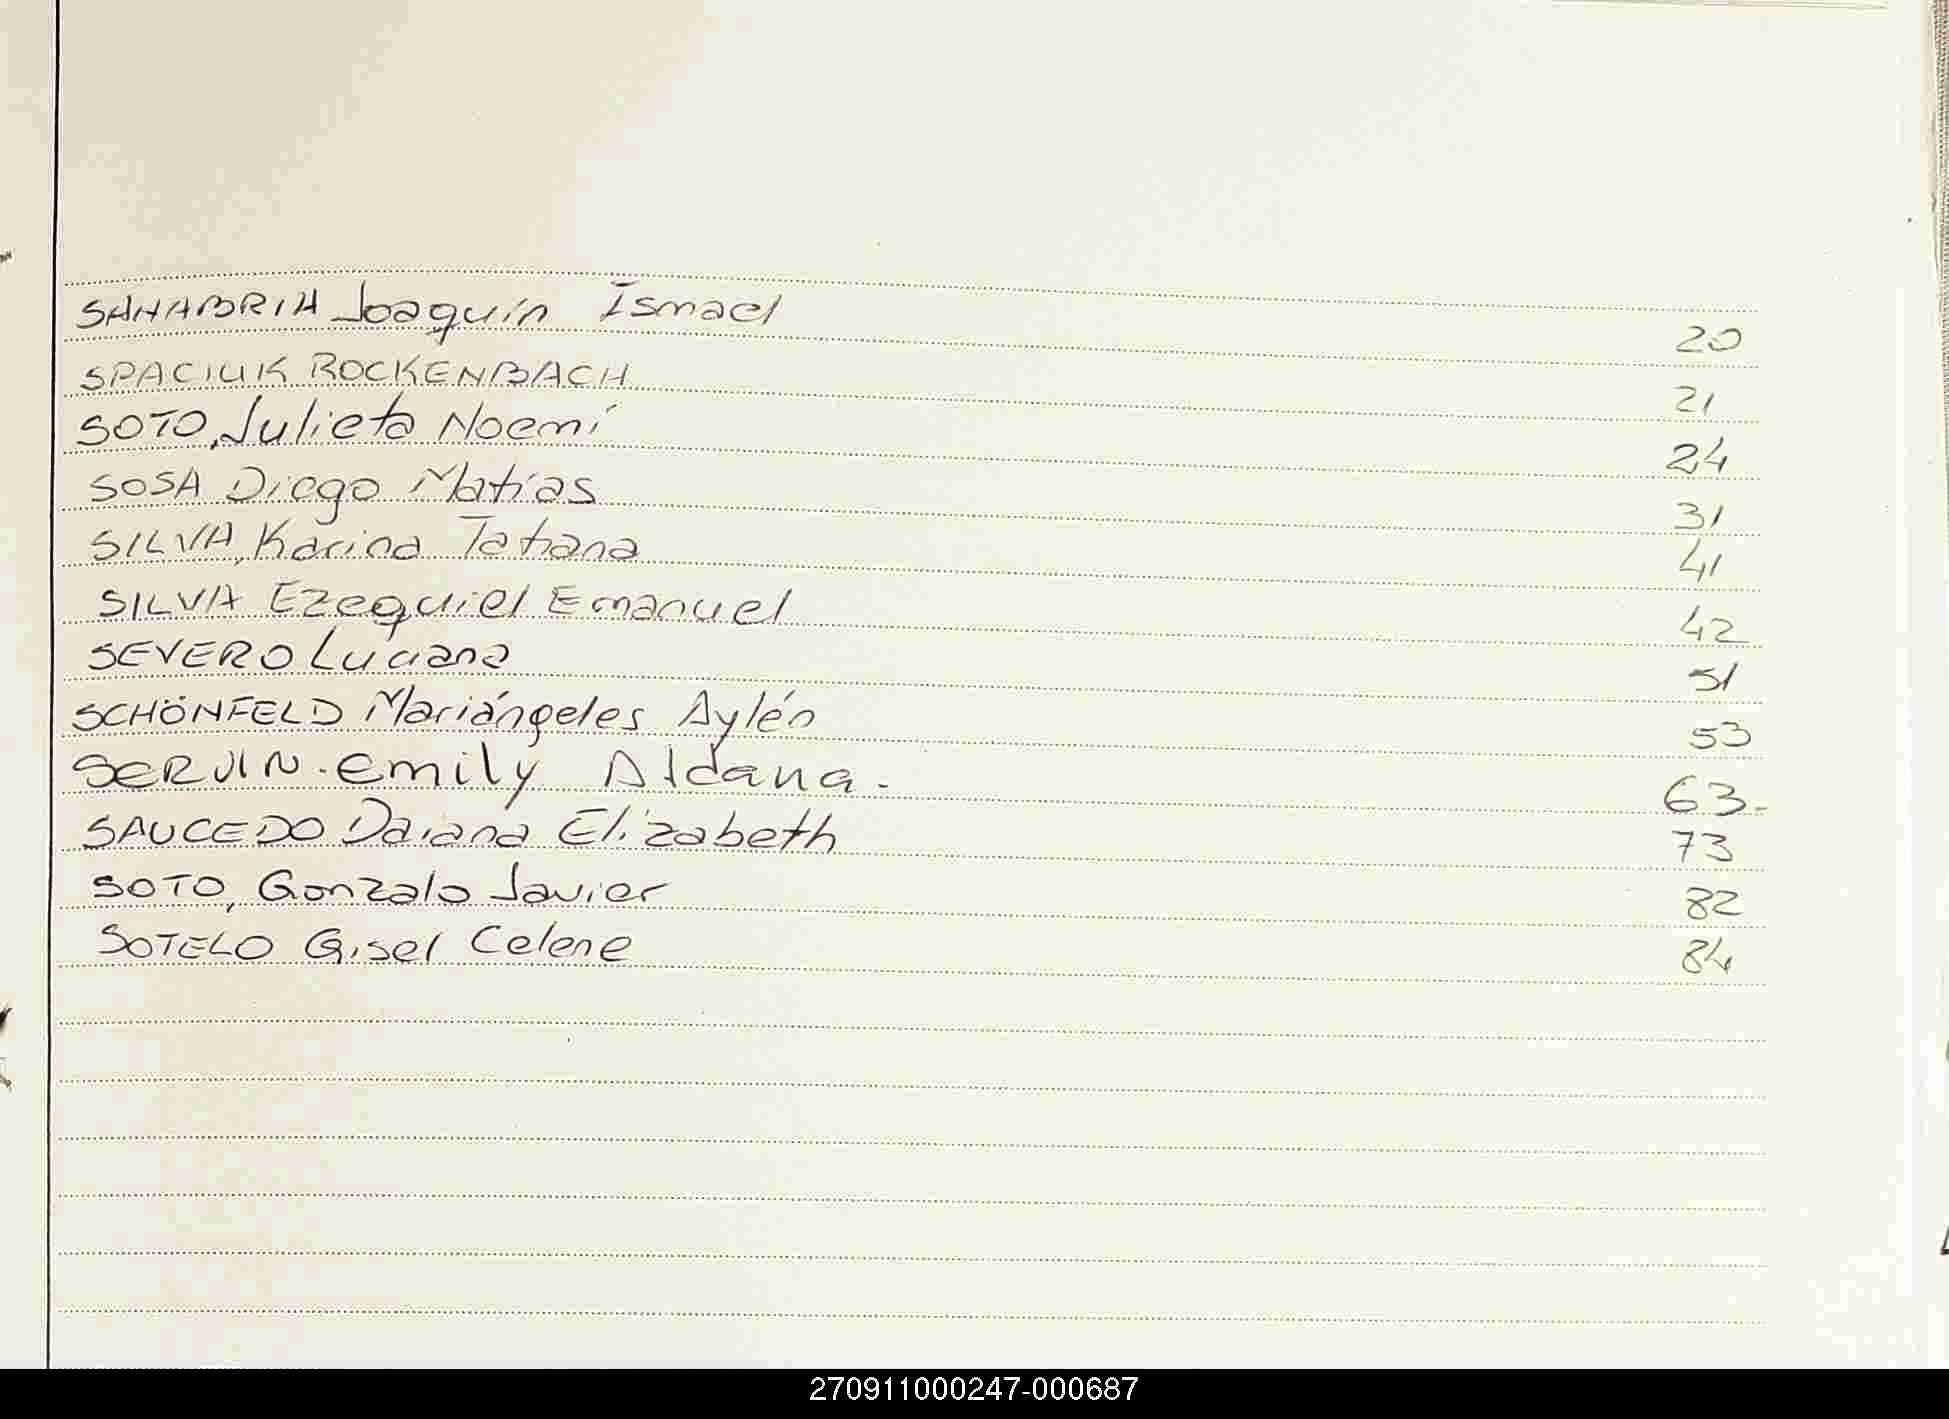 SANABRIA Joaquín Ismael 20
SPACIUK ROCKENBACH 21
SOTO, Julieta Noemí 24
SOSA Diego Matías 31
SILVA, Karina Tatiana 41
SILVA Ezequiel Emanuel 42
SEVERO Luciana 51
SCHÖNFELD Mariángeles Aylén 53
SERVIN. Emily Aldana. 63.
SAUCEDO Daiana Elizabeth 73
SOTO, Gonzalo Javier 82
SOTELO Gisel Celene 84
270911000247-000687